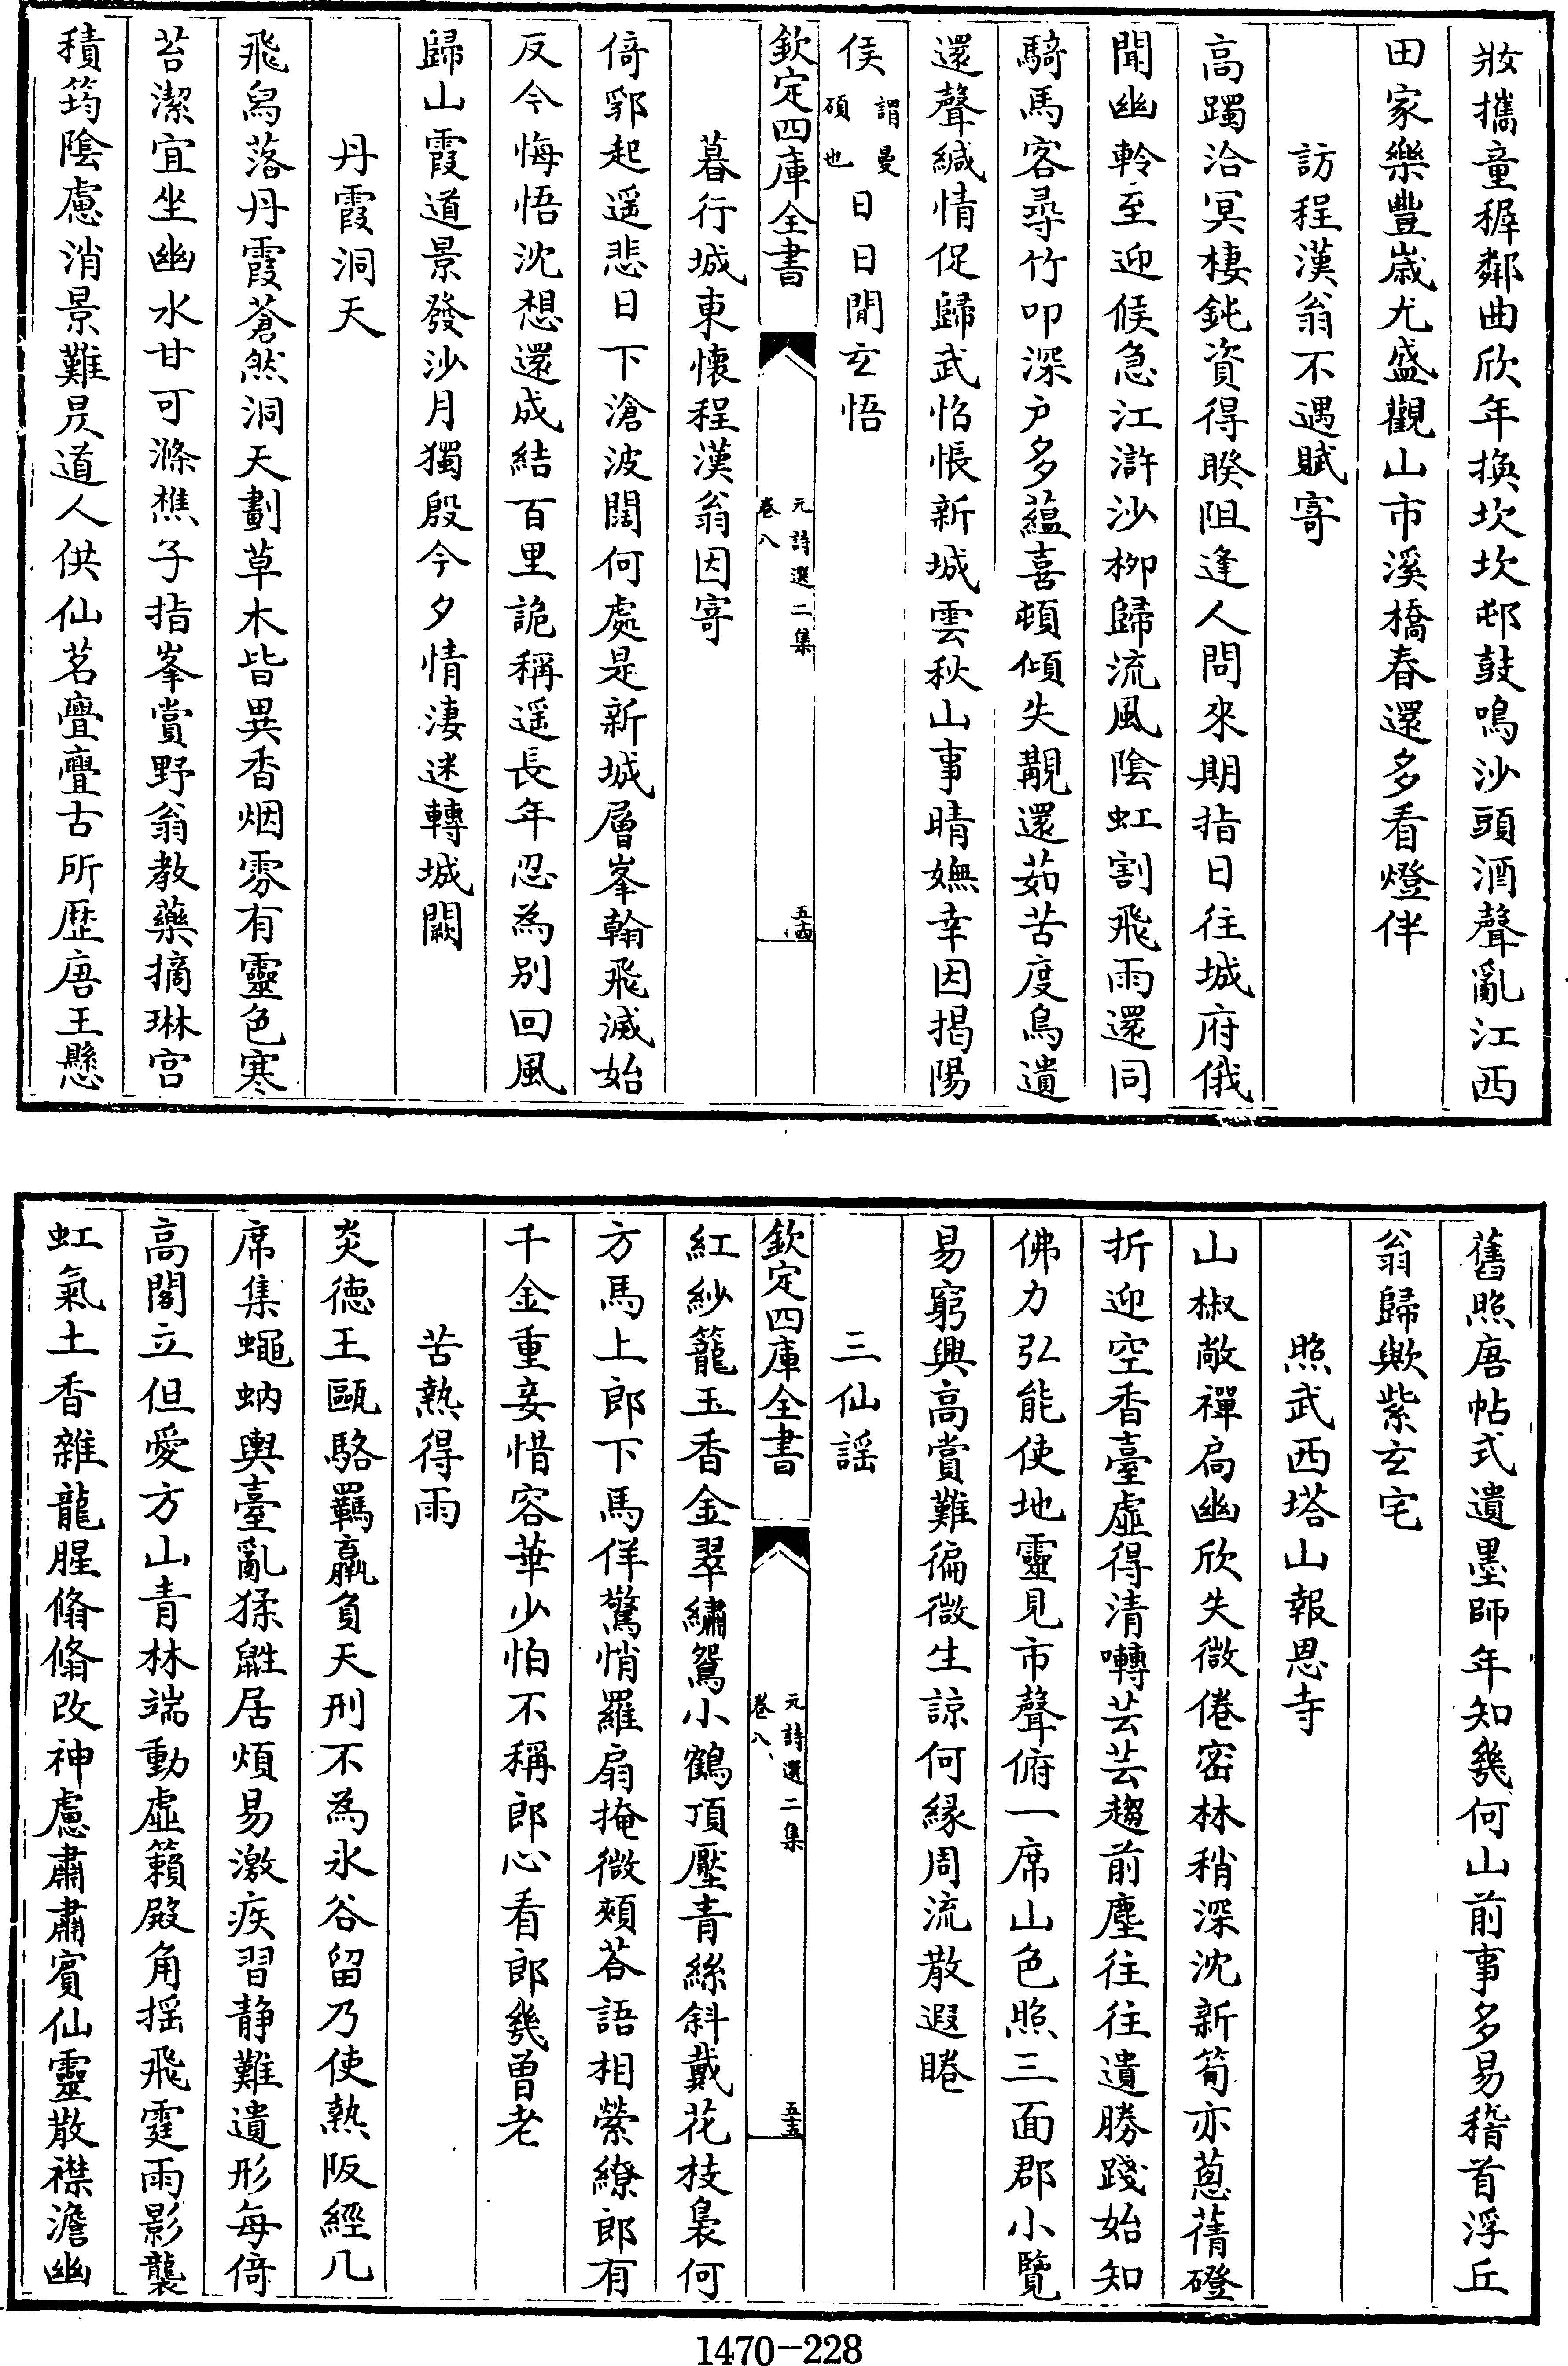 妝攜童稺鄰曲欣年換坎坎邨鼓鳴沙頭酒聲亂江西
田家樂豐歲尤盛觀山市溪橋春還多看燈伴
訪程漢翁不遇賦寄
高躅洽冥棲鈍資得暌阻逢人問來期指日往城府俄
聞幽軨至迎候急江滸沙柳歸流風陰虹割飛雨還同
騎馬客尋竹叩深户多蘊喜頓傾失覯還茹苦度鳥遺
還聲緘情促歸武怊悵新城雲秋山事晴嫵幸因揭陽
侯謂曼碩也日日閒玄悟
欽定四庫全書
元詩選二集
卷八
五十四
暮行城東懷程漢翁因寄
倚郭起遥悲日下滄波闊何處是新城層峯翰飛滅始
反今悔悟沈想還成結百里詭稱遥長年忍為别回風
歸山霞道景發沙月獨殷今夕情淒迷轉城闕
丹霞洞天
飛舃落丹霞蒼然洞天劃草木皆異香烟雰有靈色寒
苔潔宜坐幽水甘可滌樵子指峯賞野翁教藥摘琳宫
積筠陰慮消景難昃道人供仙茗亹亹古所歴唐王懸
舊照唐帖式遺墨師年知幾何山前事多易稽首浮丘
翁歸歟紫玄宅
照武西塔山報恩寺
山椒敞禪扃幽欣失微倦密林稍深沈新筍亦蔥蒨磴
折迎空香臺虛得清囀芸芸趨前塵往往遺勝踐始知
佛力弘能使地靈見市聲俯一席山色照三面郡小覽
易窮興高賞難徧微生諒何緣周流散遐睠
三仙謡
欽定四庫全書
元詩選二集
卷八
五十五
紅紗籠玉香金翠繡鴛小鶴頂壓青絲斜戴花枝裊何
方馬上郎下馬佯驚悄羅扇掩微頰荅語相縈繚郎有
千金重妾惜容華少怕不稱郎心看郎幾曾老
苦熱得雨
炎德王甌駱羈羸負天刑不為氷谷留乃使熱阪經几
席集蠅蚋輿臺亂猱鼪居煩易激疾習静難遺形每倚
高閣立但愛方山青林端動虛籟殿角揺飛霆雨影襲
虹氣土香雜龍腥翛翛改神慮肅肅賓仙靈散襟澹幽
1470-228